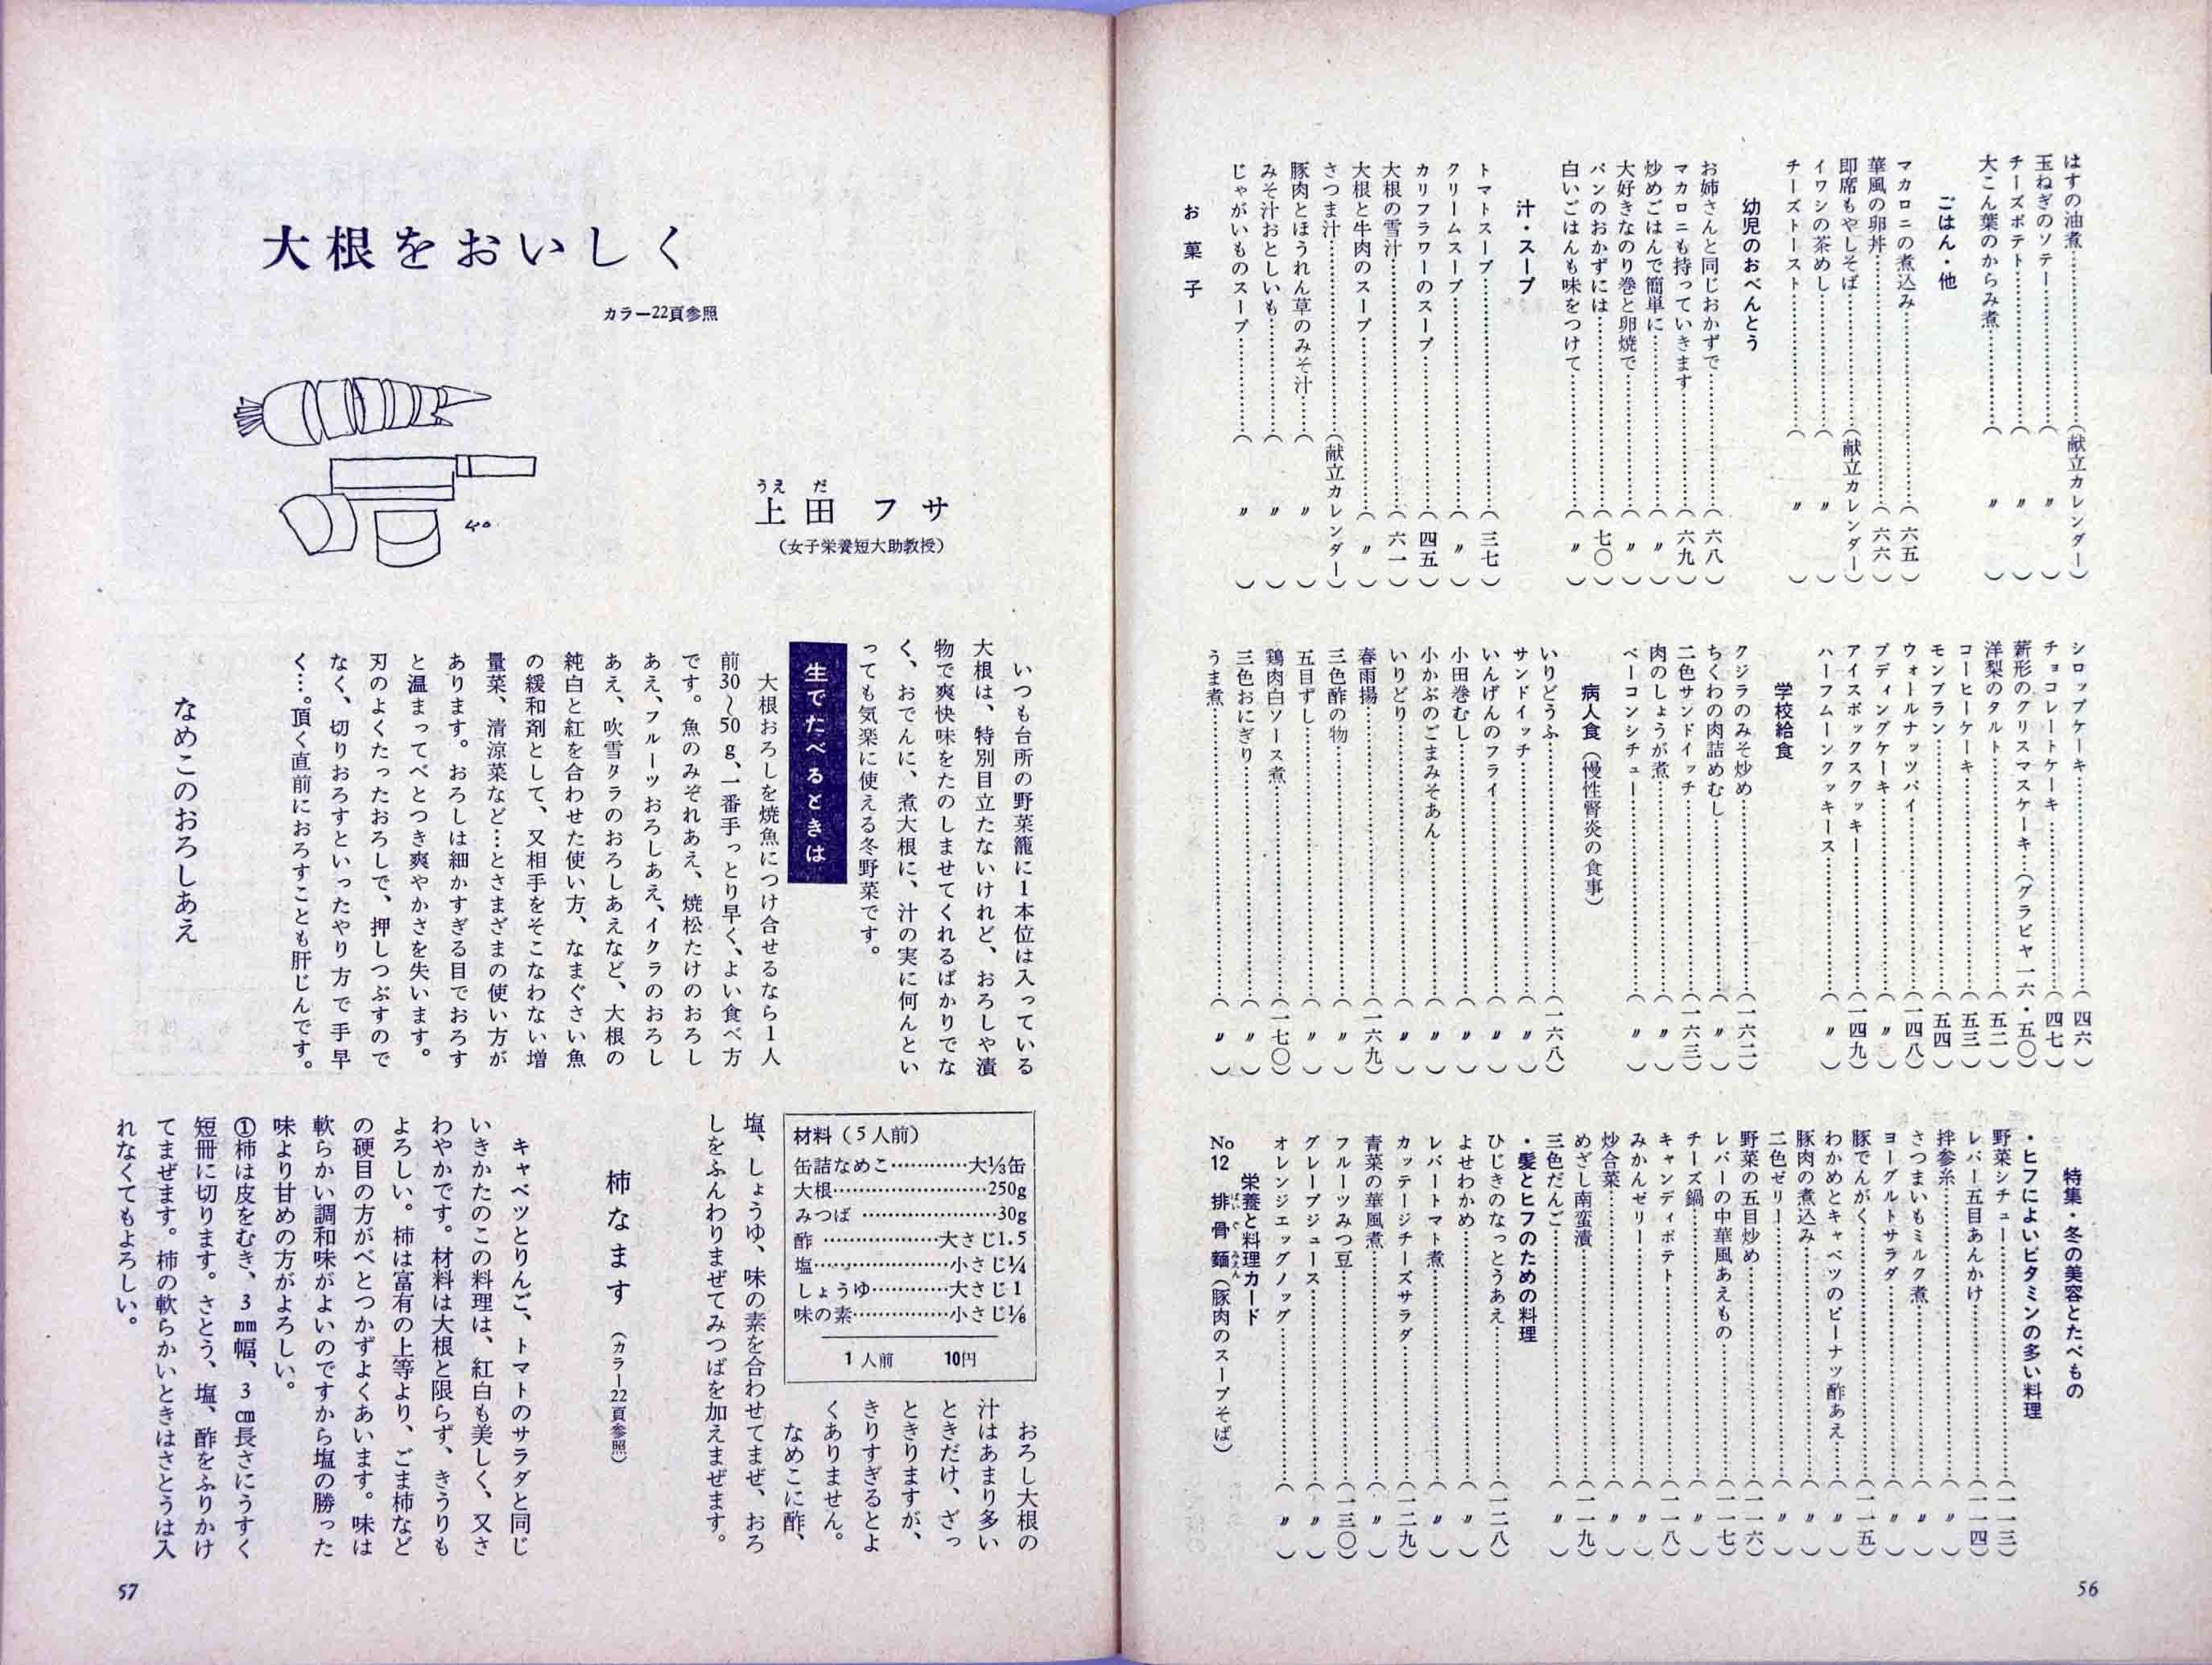 はすの油煮…………(献立カレンダー)
玉ねぎのソテー…………(〃)
チーズポテト…………(〃)
大こん葉のからみ煮…………(〃)
ごはん・他
マカロニの煮込み…………(六五)
華風の卵丼…………(六六)
即席もやしそば…………(献立カレンダー)
イワシの茶めし…………(〃)
チーズトースト…………(〃)
幼児のおべんとう
お姉さんと同じおかずで…………(六八)
マカロニも持っていきます…………(六九)
炒めごはんで簡単に…………(〃)
大好きなのり巻と卵焼で…………(〃)
パンのおかずには…………(七〇)
白いごはんも味をつけて…………(〃)
汁・スープ
トマトスープ…………(三七)
クリームスープ…………(〃)
カリフラワーのスープ…………(四五)
大根の雪汁…………(六一)
大根と牛肉のスープ…………(〃)
さつま汁…………(献立カレンダー)
豚肉とほうれん草のみそ汁…………(〃)
みそ汁おとしいも…………(〃)
じゃがいものスープ…………(〃)
お菓子
シロップケーキ…………(四六)
チョコレートケーキ…………(四七)
薪形のクリスマスケーキ…(グラビヤ一六・五〇)
洋梨のタルト…………(五二)
コーヒーケーキ…………(五三)
モンブラン…………(五四)
ウォールナッツパイ…………(一四八)
プディングケーキ…………(〃)
アイスボックスクッキー…………(一四九)
ハーフムーンクッキース…………(〃)
学校給食
クジラのみそ炒め…………(一六二)
ちくわの肉詰めむし…………(〃)
二色サンドイッチ…………(一六三)
肉のしょうが煮…………(〃)
ベーコンシチュー…………(〃)
病人食(慢性腎炎の食事)
いりどうふ…………(一六八)
サンドイッチ…………(〃)
いんげんのフライ…………(〃)
小田巻むし…………(〃)
小かぶのごまみそあん…………(〃)
いりどり…………(〃)
春雨揚…………(一六九)
三色酢の物…………(〃)
五目ずし…………(〃)
鶏肉白ソース煮…………(一七〇)
三色おにぎり…………(〃)
うま煮…………(〃)
特集・冬の美容とたべもの
・ヒフによいビタミンの多い料理
野菜シチュー…………(一一三)
レバー五目あんかけ…………(一一四)
拌参糸…………(〃)
さつまいもミルク煮…………(〃)
ヨーグルトサラダ…………(〃)
豚でんがく…………(一一五)
わかめとキャベツのピーナッツ酢あえ…………(〃)
豚肉の煮込み…………(〃)
二色ゼリー…………(〃)
野菜の五目炒め…………(一一六)
レバーの中華風あえもの…………(一一七)
チーズ鍋…………(〃)
キャンディポテト…………(一一八)
みかんゼリー…………(〃)
炒合菜…………(〃)
めざし南蛮漬…………(一一九)
三色だんご…………(〃)
・髪とヒフのための料理
ひじきのなっとうあえ…………(一二八)
よせわかめ…………(〃)
レバートマト煮…………(〃)
カッテージチーズサラダ…………(一二九)
青菜の華風煮…………(〃)
フルーツみつ豆…………(一三〇)
グレープジュース…………(〃)
オレンジエッグノッグ…………(〃)
栄養と料理カード
No12 排骨麺(豚肉のスープそば)
ぱいぐうみえん
56
大根をおいしく
カラー22頁参照
うえだ
上田フサ
(女子栄養短大助教授)
いつも台所の野菜籠に1本位は入っている
大根は、特別目立たないけれど、おろしや漬
物で爽快味をたのしませてくれるばかりでな
く、おでんに、煮大根に、汁の実に何んとい
っても気楽に使える冬野菜です。
生でたべるときは
大根おろしを焼魚につけ合せるなら1人
前30〜50g、一番手っとり早く、よい食べ方
です。魚のみぞれあえ、焼松たけのおろし
あえ、フルーツおろしあえ、イクラのおろし
あえ、吹雪タラのおろしあえなど、大根の
純白と紅を合わせた使い方、なまぐさい魚
の緩和剤として、又相手をそこなわない増
量菜、清涼菜など…とさまざまの使い方が
あります。おろしは細かすぎる目でおろす
と温まってべとつき爽やかさを失います。
刃のよくたったおろしで、押しつぶすので
なく、切りおろすといったやり方で手早
く…。頂く直前におろすことも肝じんです。
なめこのおろしあえ
材料(5人前)
缶詰なめこ…………大⅓缶
大根…………250g
みつば…………30g
酢…………大さじ1.5
塩…………小さじ¼
しょうゆ…………大さじ1
味の素…………小さじ⅛
1人前 10円
おろし大根の
汁はあまり多い
ときだけ、ざっ
ときりますが、
きりすぎるとよ
くありません。
なめこに酢、
塩、しょうゆ、味の素を合わせてまぜ、おろ
しをふんわりまぜてみつばを加えまぜます。
柿なます(カラー22頁参照)
キャベツとりんご、トマトのサラダと同じ
いきかたのこの料理は、紅白も美しく、又さ
わやかです。材料は大根と限らず、きうりも
よろしい。柿は富有の上等より、ごま柿など
の硬目の方がべとつかずよくあいます。味は
軟らかい調和味がよいのですから塩の勝った
味より甘めの方がよろしい。
①柿は皮をむき、3mm幅、3cm長さにうすく
短冊に切ります。さとう、塩、酢をふりかけ
てまぜます。柿の軟らかいときはさとうは入
れなくてもよろしい。
57